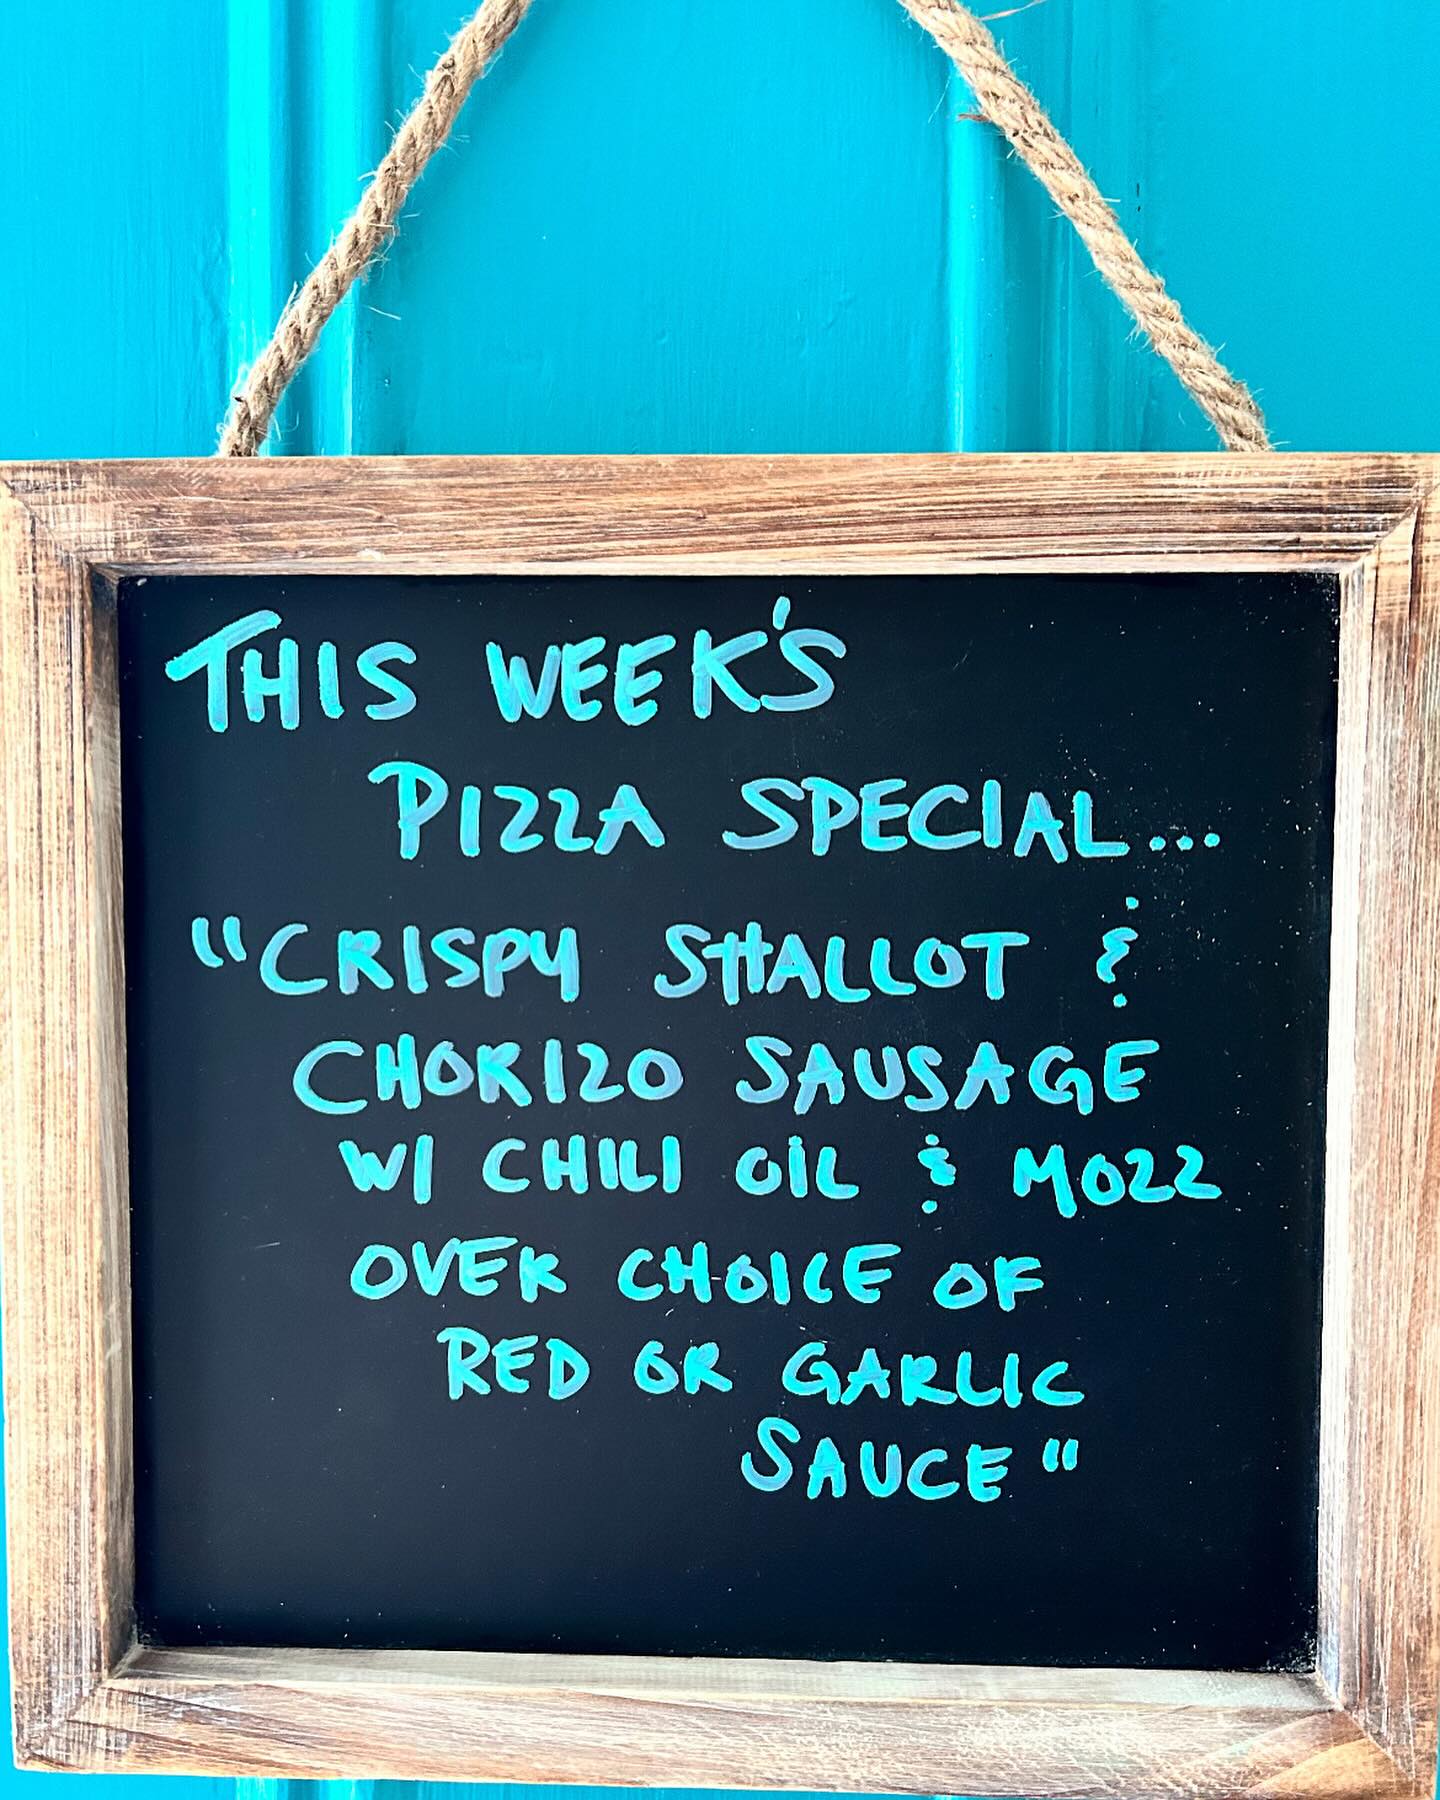 THIS WEEK'S
PIZZA SPECIAL...
"CRISPY SHALLOT &
CHORIZO SAUSAGE
W/ CHILI OIL & MOZZ
OVER CHOICE OF
RED OR GARLIC
SAUCE"